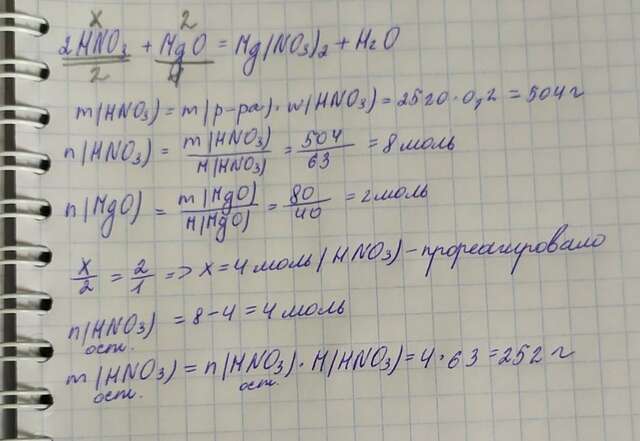 x 2
2HNO₃ + MgO = Mg(NO₃)₂ + H₂O
2 1
m(HNO₃) = m(р-ра) · w(HNO₃) = 2520 · 0,2 = 504 г
n(HNO₃) = m(HNO₃)/M(HNO₃) = 504/63 = 8 моль
n(MgO) = m(MgO)/M(MgO) = 80/40 = 2 моль
x/2 = 2/1 => x = 4 моль (HNO₃) - прореагировало
n(HNO₃) ост. = 8 - 4 = 4 моль
m(HNO₃) ост. = n(HNO₃) ост. · M(HNO₃) = 4 · 63 = 252 г